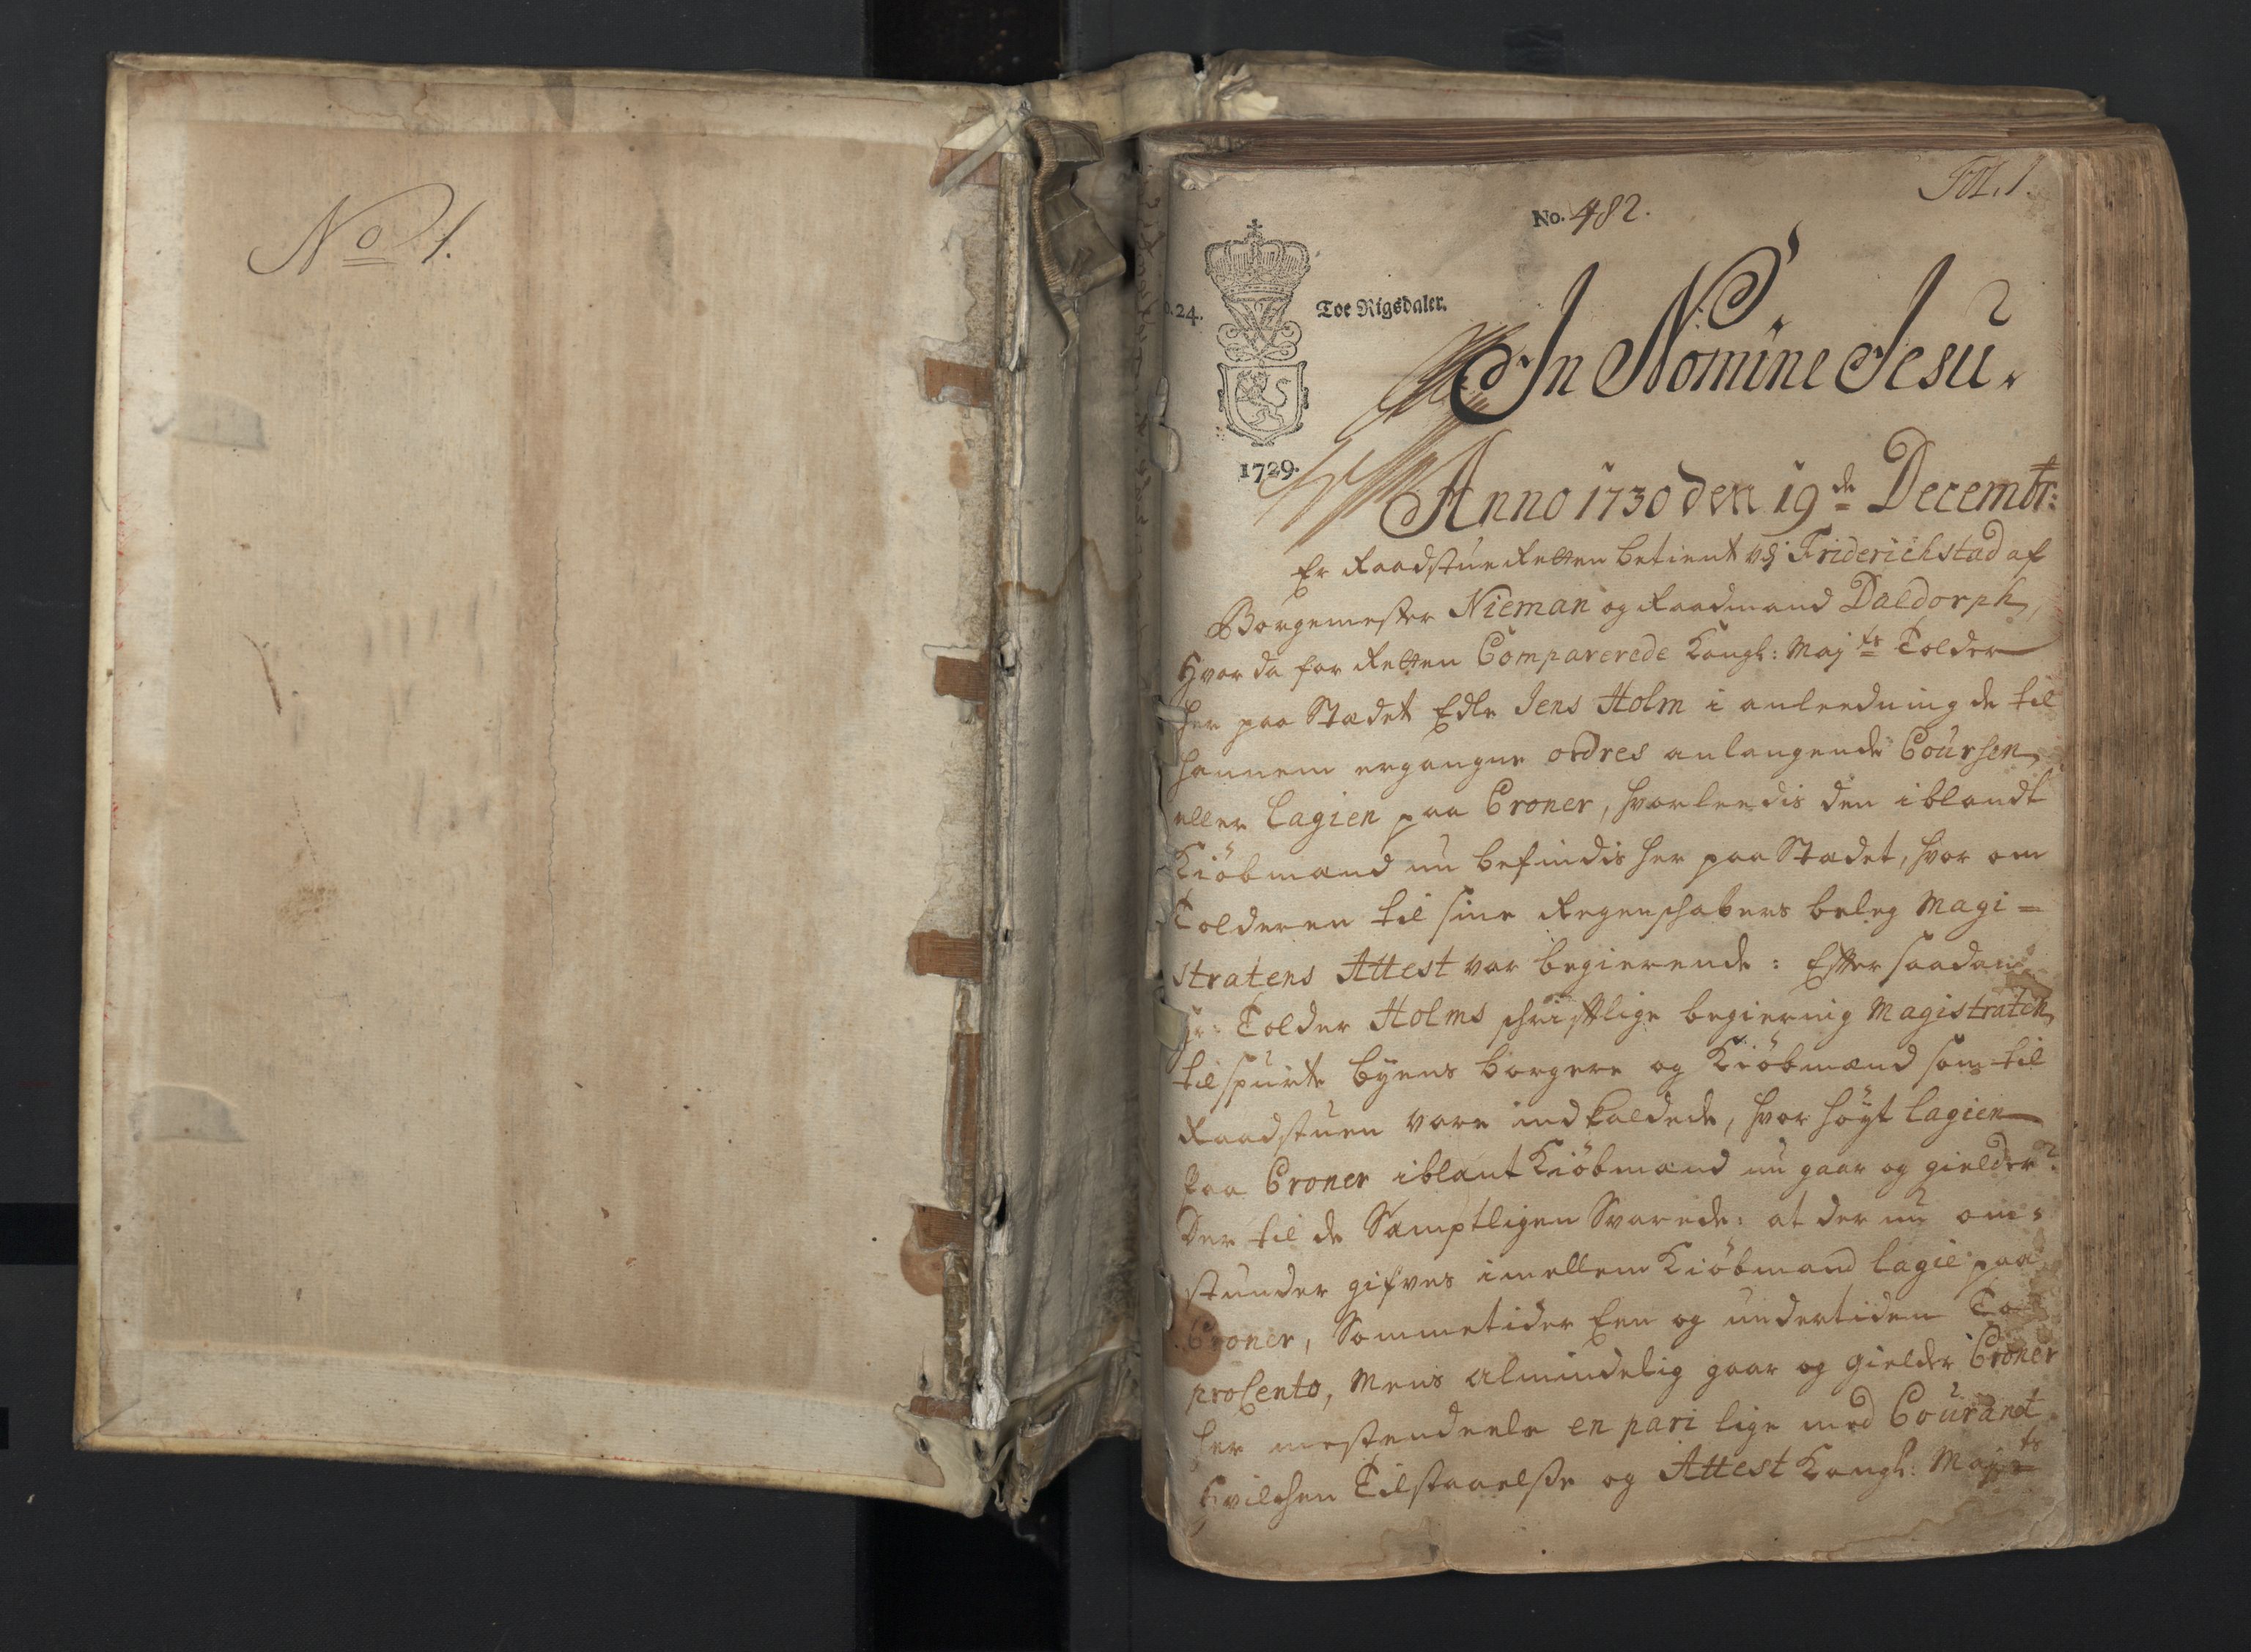 No 1.
Fol. 1.
No. 482.
24.
Toe Rigsdaler.
1729.
In Nomine Jesu.
Anno 1730 den 19de Decembr:
Er Raadstue Retten betient udj Friderichstad af
Borgemester Nieman og Raadmand Daldorph,
Hvor da for Retten Comparerede Kongl: Maj:ts Tolder
her paa Stædet Edle Jens Holm i anleedning de til
hannem ergangne ordres anlangende Coursen
eller Lagien paa Croner, hvorleedis den iblandt
Kiöbmænd nu befindis her paa Stædet, hvor om
Tolderen til sine Regenschabers beleg Magi=
stratens Attest var begierende: Efter saadan
Hr: Tolder Holms schriftlige begiering Magistraten
tilspurte byens borgere og Kiöbmænd som til
Raadstuen vare indkaldede, hvor höyt Lagien
paa Croner iblant Kiöbmænd nu gaar og gielder?
Der til de Samptligen Svarede: at der nu om=
stunder gifves imellem Kiöbmænd Lagie paa
Croner, Sommetider Een og undertiden To
proCento, Mens Almindelig gaar og gielder Croner
her mestendeele en pari lige med Courant
Hvilchen Tilstaaelse og Attest Kongl: Maj:ts